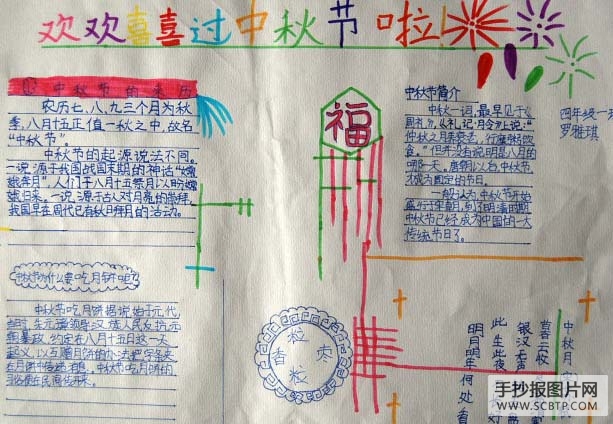 欢欢喜喜过中秋节啦!
中秋节的来历
农历七、八、九三个月为秋
季,八月十五正值一秋之中,故名
“中秋节”。
中秋节的起源说法不同。
一说源于我国战国末期的神话“嫦
娥奔月”。人们于八月十五祭月以盼嫦
娥归来。一说,源于古人对月亮的崇拜,
我国早在周代已有秋月拜月的活动。
中秋节为什么要吃月饼呢?
中秋节吃月饼据说始于元代
约定在八月十五这一天
起义,以互赠月饼的办法把字条夹
在月饼中传递消息,中秋节吃月饼的
习俗便在民间传开来。
福
中秋节简介
中秋一词,最早见于《
周礼》,《礼记·月令》上说:“
仲秋之月养衰老,行糜粥饮
食。”但并没有说明是八月的
哪一天,唐朝以后,中秋节
才成为固定的节日。
中秋节开始
盛行于宋朝,到了明清时期
中秋节已经成为中国的一大
传统节日了。
四年级一
罗雅琪
香
枣
中秋月
暮云收
银汉无声
此生此夜
明月明年何处看
手抄报图片网
WWW.SCBTP.COM